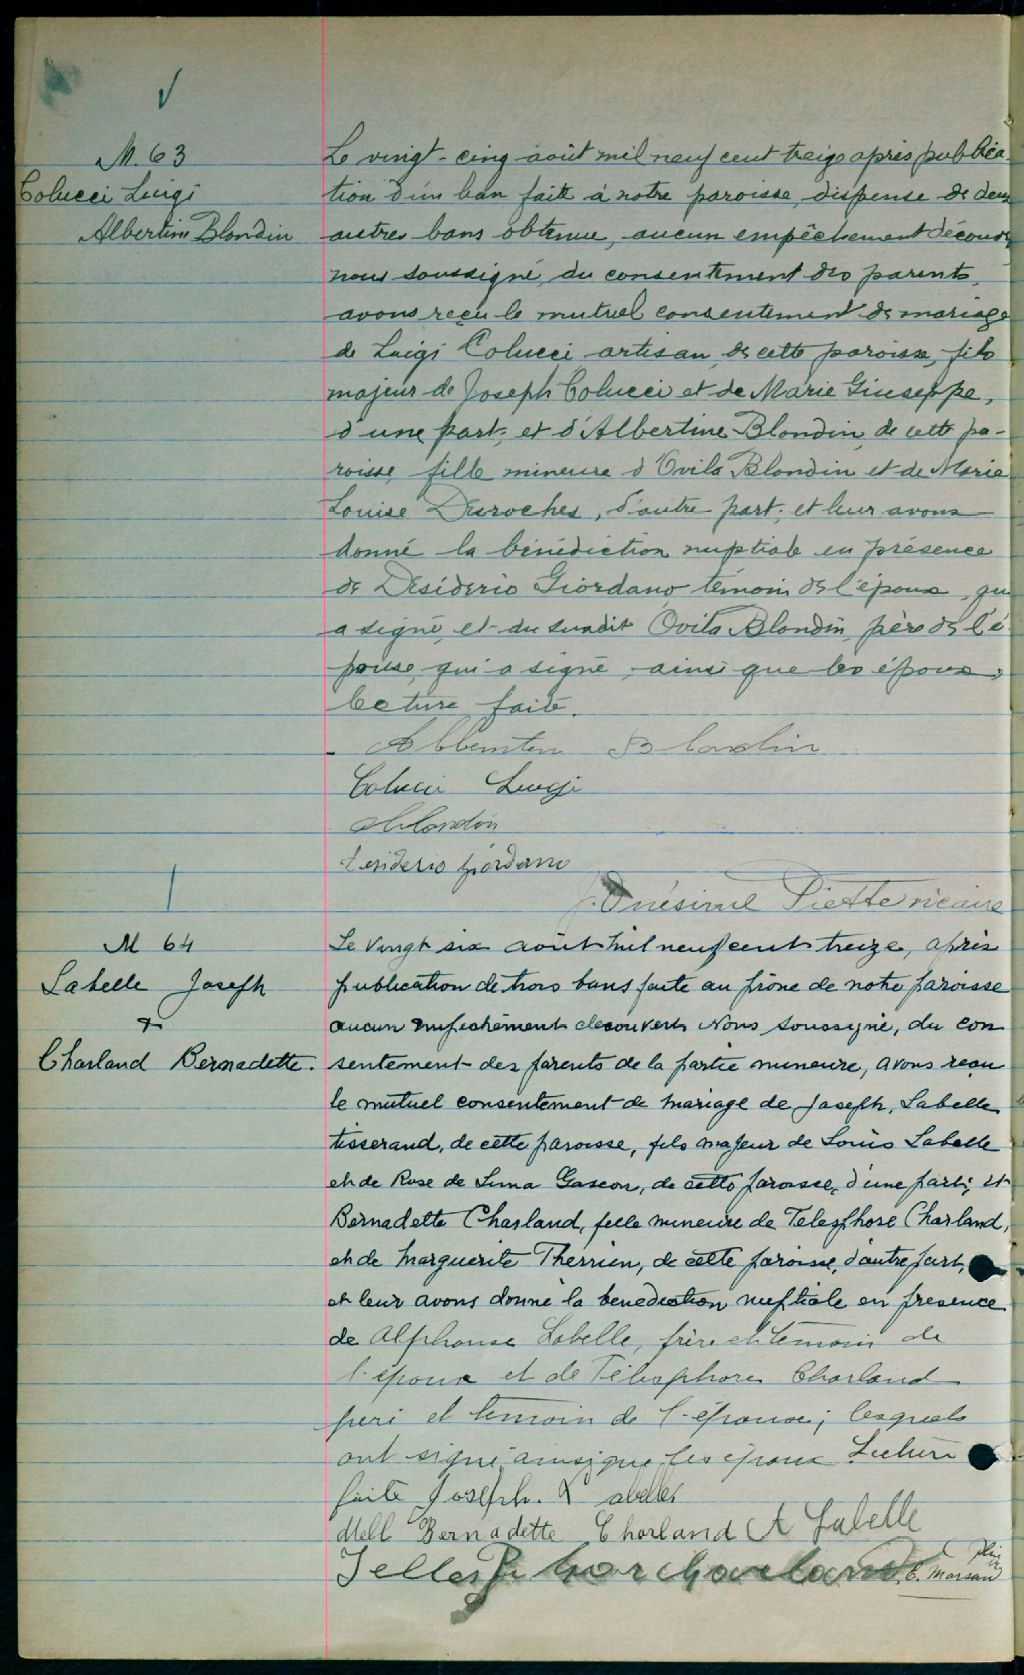 M. 63
Colucci Luigi
Albertine Blondin
Le vingt-cinq août mil neuf cent treize après publica-
tion d'un ban faite à notre paroisse, dispense de deux
autres bans obtenue, aucun empêchement découvert
nous soussigné, du consentement des parents,
avons reçu le mutuel consentement de mariage
de Luigi Colucci artisan, de cette paroisse, fils
majeur de Joseph Colucci et de Marie Giuseppe,
d'une part; et d'Albertine Blondin, de cette pa-
roisse, fille mineure d'Ovila Blondin et de Marie
Louise Desroches, d'autre part; et leur avons
donné la bénédiction nuptiale en présence
de Désiderio Giordano témoin de l'époux, qui
a signé, et du susdit Ovila Blondin, père de l'é
pouse, qui a signé, ainsi que les époux,
lecture faite.
Blondin
Colucci Luigi
Blondin
Desiderio Giordano
J. Onésime Piette vicaire
M 64
Labelle Joseph
&
Charland Bernadette.
Le vingt six août mil neuf cent treize, après
publication de trois bans faite au prône de notre paroisse
aucun empechement decouvert Nous soussigné, du con
sentement des parents de la partie mineure, avons reçu
le mutuel consentement de mariage de Joseph, Labelle
tisserand, de cette paroisse, fils majeur de Louis Labelle
et de Rose de Lima Gascon, de cette paroisse, d'une part; et
Bernadette Charland, fille mineure de Telesphore Charland,
et de Marguerite Therrien, de cette paroisse, d'autre part,
et leur avons donné la benediction nuptiale en presence
de Alphonse Labelle, frère et témoin de
l'époux et de Télesphore Charland
père et temoin de l'épouse; lesquels
ont signé ainsi que les époux Lecture
faite Joseph. Labelle
Mell Bernadette Charland A Labelle
charland E. Marsan